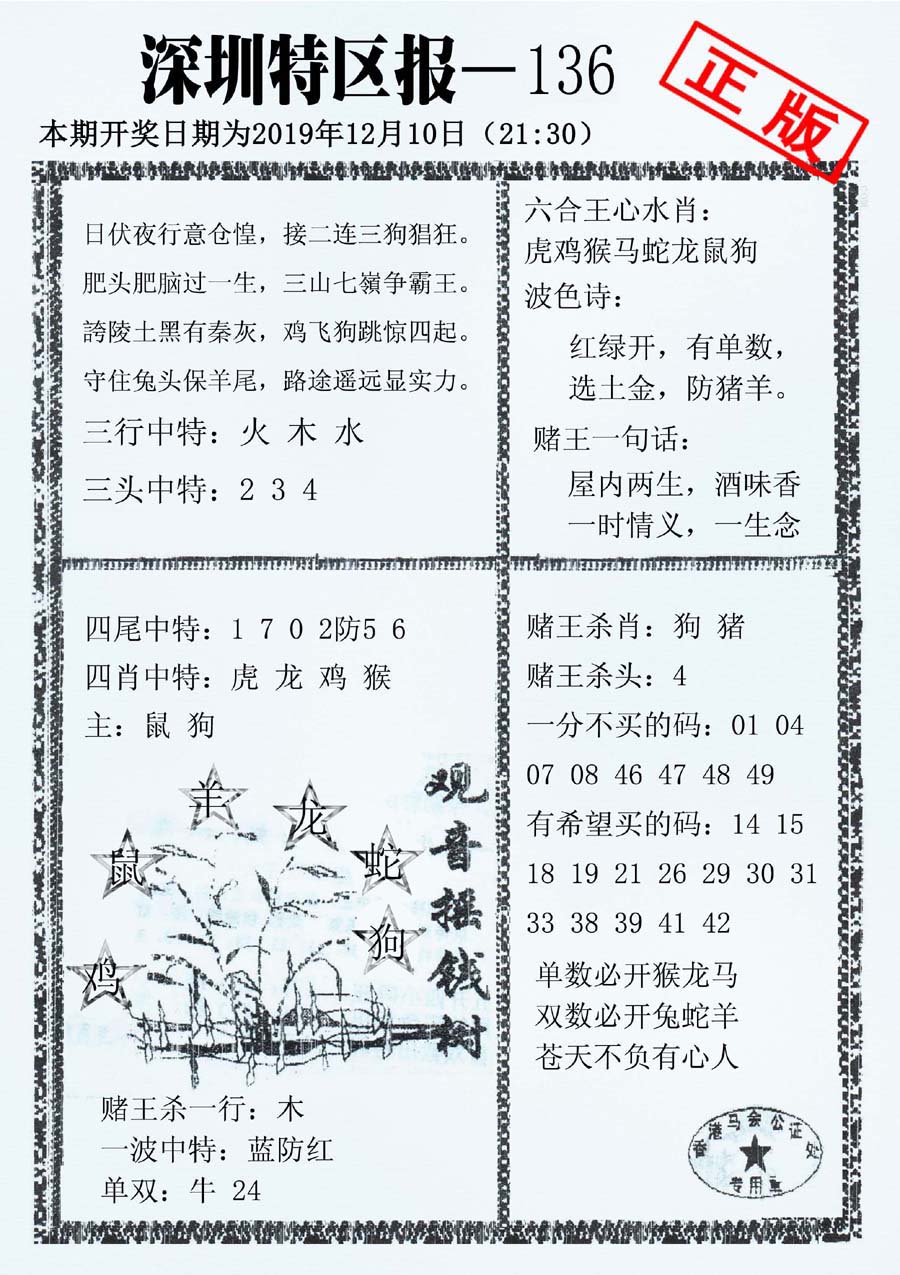 深圳特区报—136
正版
本期开奖日期为2019年12月10日（21:30）
日伏夜行意仓惶，接二连三狗猖狂。
肥头肥脑过一生，三山七嶺争霸王。
誇陵土黑有秦灰，鸡飞狗跳惊四起。
守住兔头保羊尾，路途遥远显实力。
三行中特：火 木 水
三头中特：2 3 4
六合王心水肖：
虎鸡猴马蛇龙鼠狗
波色诗：
红绿开，有单数，
选土金，防猪羊。
赌王一句话：
屋内两生，酒味香
一时情义，一生念
四尾中特：1 7 0 2防5 6
四肖中特：虎 龙 鸡 猴
主：鼠 狗
羊
龙
鼠
蛇
狗
鸡
观音摇钱树
赌王杀一行：木
一波中特：蓝防红
单双：牛 24
赌王杀肖：狗 猪
赌王杀头：4
一分不买的码：01 04
07 08 46 47 48 49
有希望买的码：14 15
18 19 21 26 29 30 31
33 38 39 41 42
单数必开猴龙马
双数必开兔蛇羊
苍天不负有心人
香港马会公证处
专用章